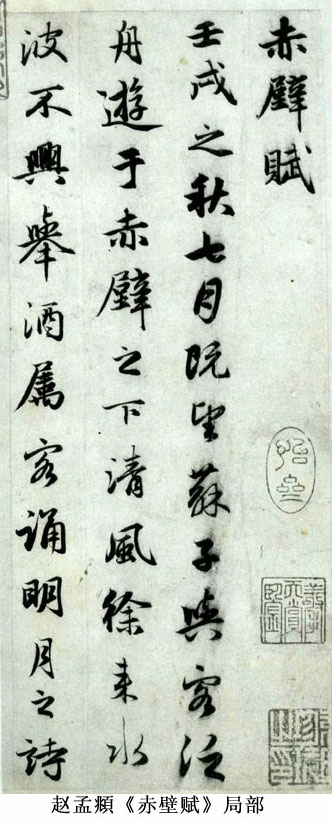 赤壁賦
壬戌之秋七月既望蘇子與客泛
舟遊于赤壁之下清風徐来水
波不興舉酒属客誦明月之詩
赵孟頫《赤壁赋》局部